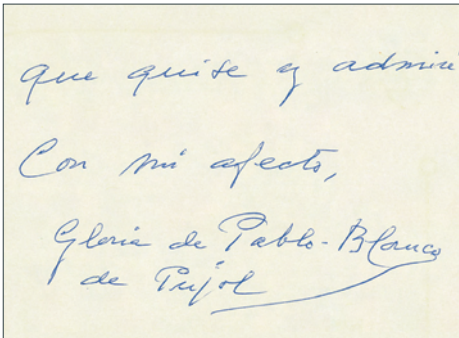 que quise y admiré
Con mi afecto,
Gloria de Pablo-Blanco
de Pujol